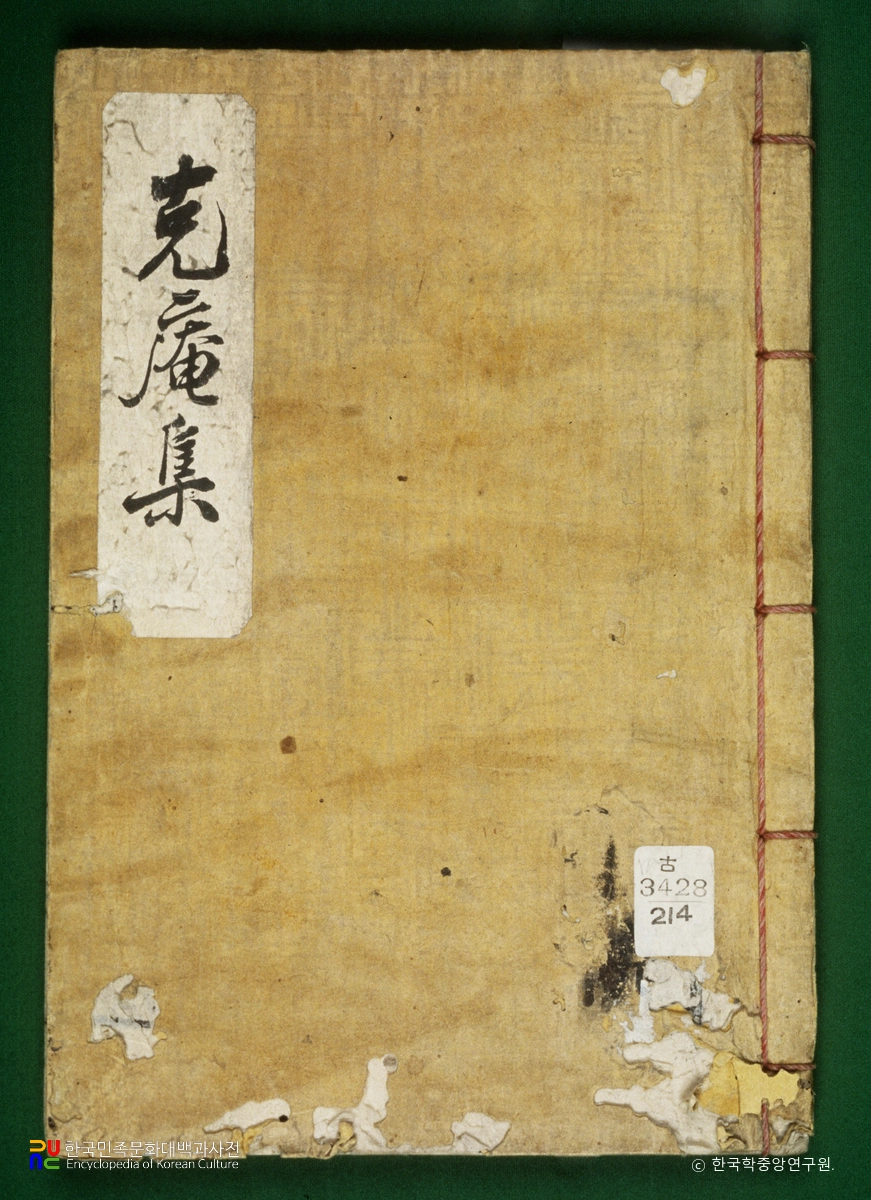 克庵集
古
3428
214
한국민족문화대백과사전
Encyclopedia of Korean Culture
© 한국학중앙연구원.